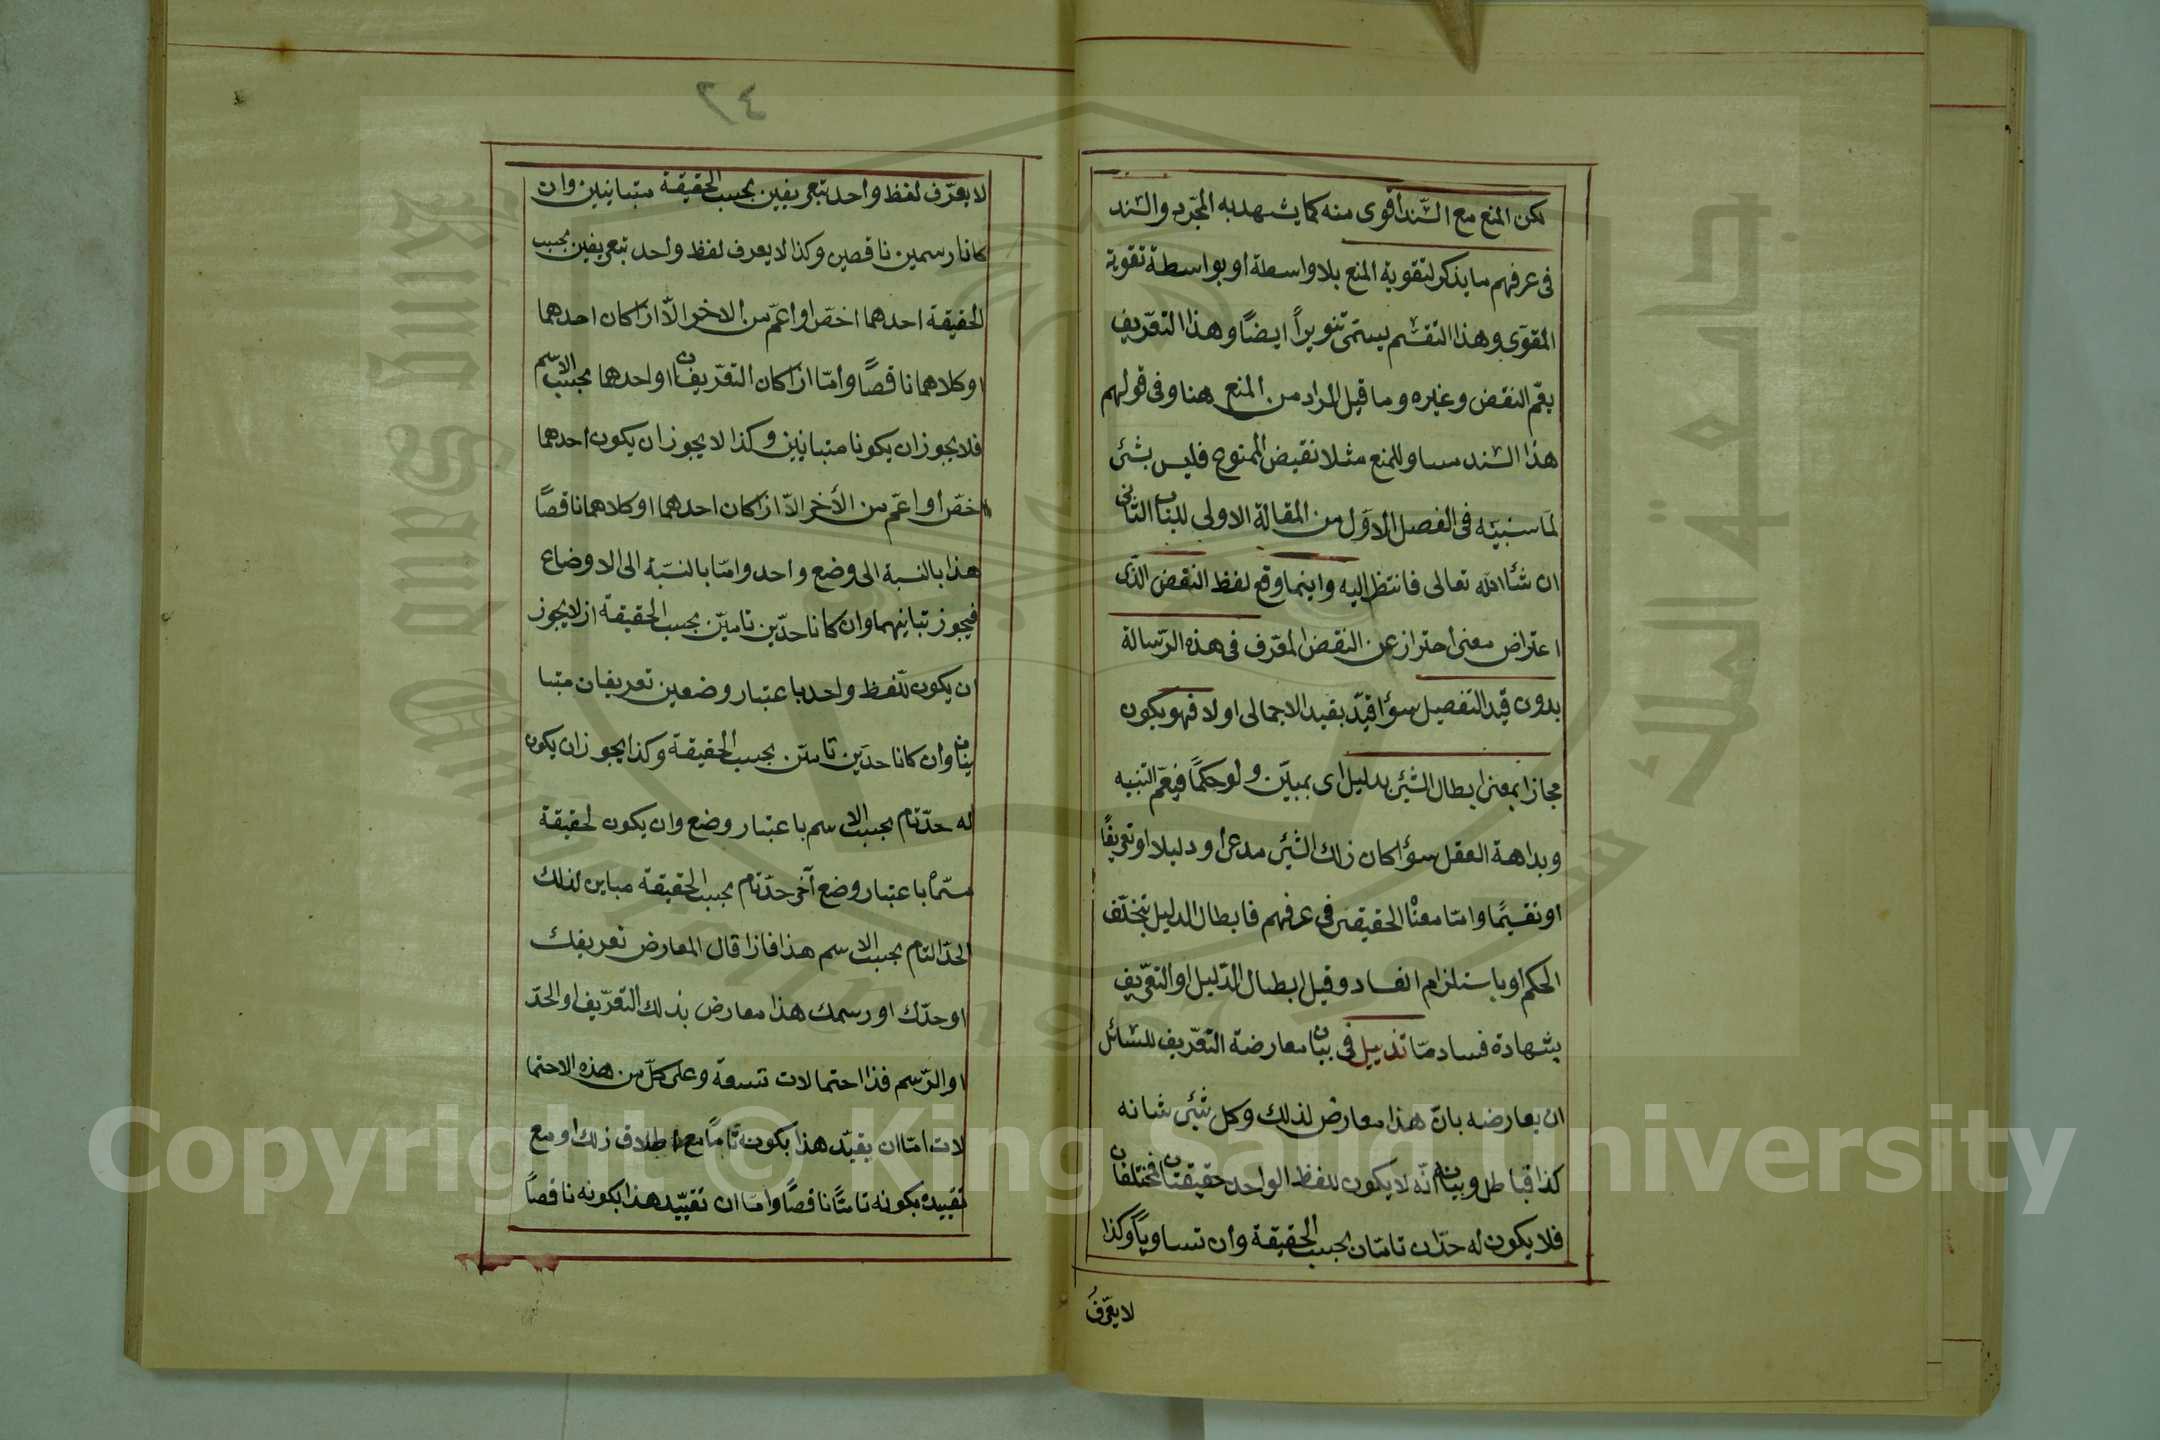 لكن المنع مع السّند اقوى منه كما يشهد به المجرّبه والسّند
فى عرفهم ما يذكر لتقوية المنع بلا واسطة او بواسطة تقوية
المقوّى وهذا التقسّم يسمّى تنويراً ايضاً وهذا التعّريف
يعّم النقض وغيره وما قيل المراد من المنع هنا وفى قولهم
هذا السّند مساو للمنع مثلا نقيض الممنوع فليس بشئ
لما سنبيّنه فى الفصل الاوّل من المقالة الاولى للبيان الثانى
ان شأ الله تعالى فانتظر اليه واينما وقع لفظ النقض الذّى
اعتراض معنى احتراز عن النقض المعّرف فى هذه الرّسالة
بدون قيد التفصيل سوأ قيّد بقيد الاجمالى اولا فهو يكون
مجازا بمعنى ابطال الشّئ بدليل اى بمبيّن ولو حكمًا فيعّم التنبيه
وبداهة العقل سوأ كان ذلك الشّئ مدعى او دليلا او تعريفًا
او تقسيمًا وامّا معناه الحقيقى فى عرفهم فابطال الدليل بتخلّف
الحكم او باستلزام الفساد وقيل ابطال الدّليل او التعّريف
بشهادة فساد مّا تذييل فى بيان معارضة التعّريف للسّائل
ان يعارضه بانّ هذا معارض لذلك وكل شئ شانه
كذا فباطل وبيانه انّه لا يكون للفظ الواحد حقيقتان مختلفان
فلا يكون له حدّان تامّان بحسب الحقيقة وان تساوياً وكذا
لا يعّرفُ
٤٦
لا يعرّف لفظ واحد بتعريفين بحسب الحقيقة متباينين وان
كانا رسمين ناقصين وكذا لا يعرف لفظ واحد بتعريفين بحسب
الحقيقة احدهما اخصّ او اعّم من الاخر الاّ اذا كان احدهما
او كلاهما ناقصًا وامّا اذا كان التعّريفان او احدهما بحسب الاسّم
فلا يجوز ان يكونا متباينين وكذا لا يجوز ان يكون احدهما
اخصّ او اعّم من الأخر الاّ اذا كان احدهما او كلاهما ناقصًا
هذا بالنسبة الى وضع واحد وامّا بالنسّبة الى الاوضاع
فيجوز تباينهما وان كانا حدّين تاميّن بحسب الحقيقة اذ لا يجوز
ان يكون للّفظ واحد باعتبار وضعين تعريفان متبا
ينان وان كانا حدّين تامّين بحسب الحقيقة وكذا يجوز ان يكون
له حدّ تام بحسب الاسم باعتبار وضع وان يكون لحقيقة
مسّمأ باعتبار وضع آخر حدّ تام بحسب الحقيقة مباين لذلك
الحدّ التام بحسب الاسم هذا فاذا قال المعارض تعريفك
او حدّك او رسمك هذا معارض بذلك التعّريف او الحدّ
او الرّسم فذا احتمالات تسعة وعلى كلّ من هذه الاحتما
لات امّا ان يقيّد هذا بكونه تامّا مع اطلاق ذلك او مع
تقييده بكونه تامّا ناقصًا وامّا ان تقيّيد هذا بكونه ناقصًا